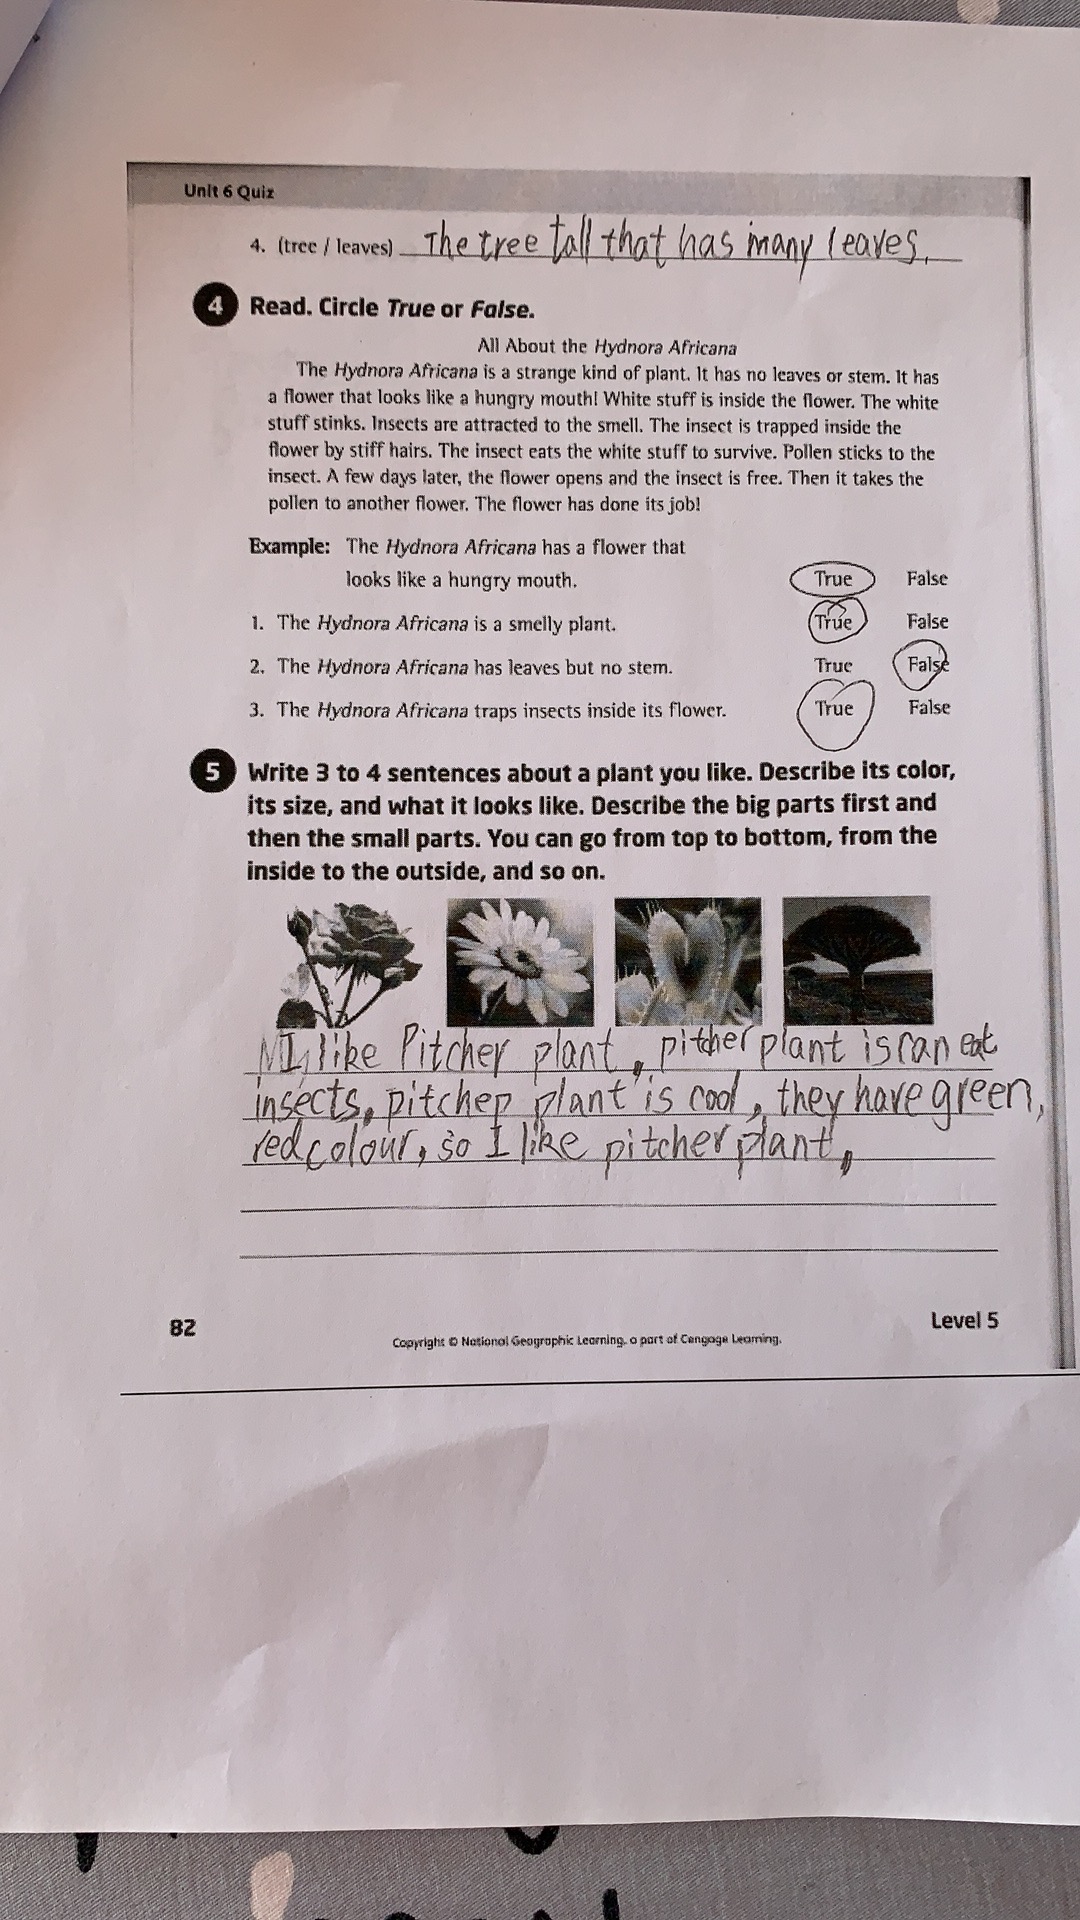 Unit 6 Quiz
4. (tree / leaves) The tree tall that has many leaves.
4 Read. Circle True or False.
All About the Hydnora Africana
The Hydnora Africana is a strange kind of plant. It has no leaves or stem. It has
a flower that looks like a hungry mouth! White stuff is inside the flower. The white
stuff stinks. Insects are attracted to the smell. The insect is trapped inside the
flower by stiff hairs. The insect eats the white stuff to survive. Pollen sticks to the
insect. A few days later, the flower opens and the insect is free. Then it takes the
pollen to another flower. The flower has done its job!
Example: The Hydnora Africana has a flower that
looks like a hungry mouth. True False
1. The Hydnora Africana is a smelly plant. True False
2. The Hydnora Africana has leaves but no stem. True False
3. The Hydnora Africana traps insects inside its flower. True False
5 Write 3 to 4 sentences about a plant you like. Describe its color,
its size, and what it looks like. Describe the big parts first and
then the small parts. You can go from top to bottom, from the
inside to the outside, and so on.
I like Pitcher plant, pitcher plant is can eat
insects, pitcher plant is cool, they have green,
red colour, so I like pitcher plant,
82
Level 5
Copyright © National Geographic Learning, a part of Cengage Learning.